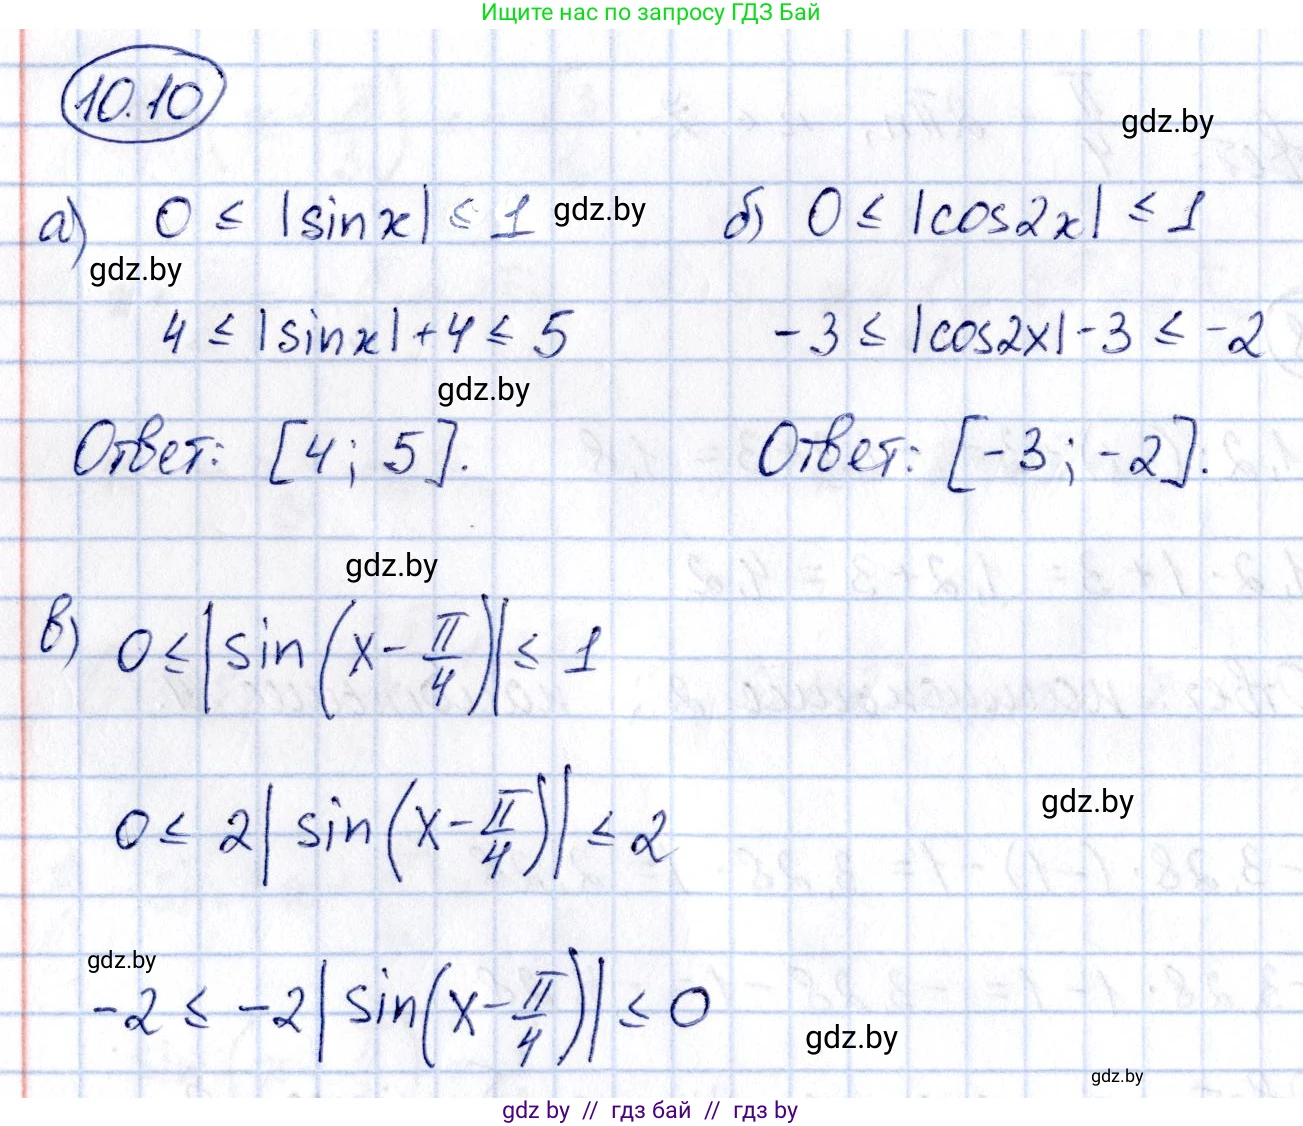 Ищите нас по запросу ГДЗ Бай
10.10
gdz.by
а) 0 ≤ |sin x| ≤ 1
gdz.by
б) 0 ≤ |cos2x| ≤ 1
gdz.by
4 ≤ |sin x| + 4 ≤ 5
-3 ≤ |cos2x| - 3 ≤ -2
gdz.by
Ответ: [4; 5].
Ответ: [-3; -2].
gdz.by
в) 0 ≤ |sin(x - π/4)| ≤ 1
0 ≤ 2|sin(x - π/4)| ≤ 2
gdz.by
gdz.by
-2 ≤ -2|sin(x - π/4)| ≤ 0
gdz.by
gdz.by
gdz by // гдз бай // гдз by